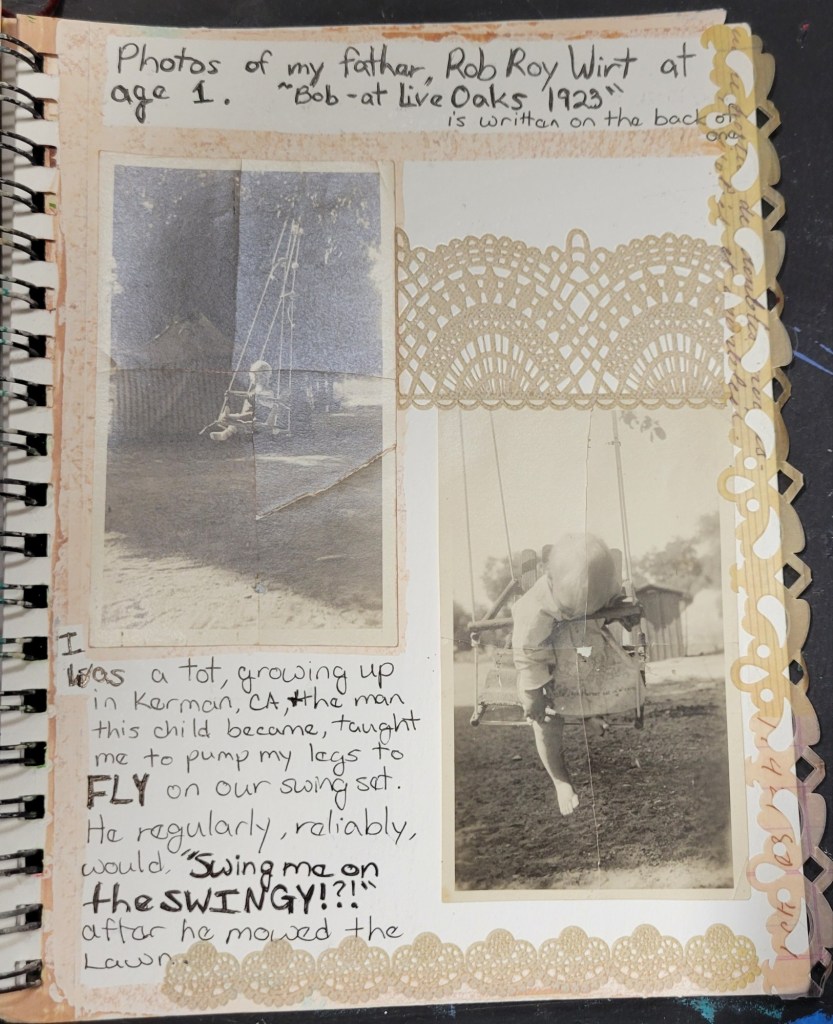 Photos of my father, Rob Roy Wirt at
age 1. "Bob-at Live Oaks 1923"
is written on the back of
one
I
was a tot, growing up
in Kerman, CA, the man
this child became, taught
me to pump my legs to
FLY on our swing set.
He regularly, reliably,
would, "Swing me on
the SWINGY!?!"
after he mowed the
Lawn.